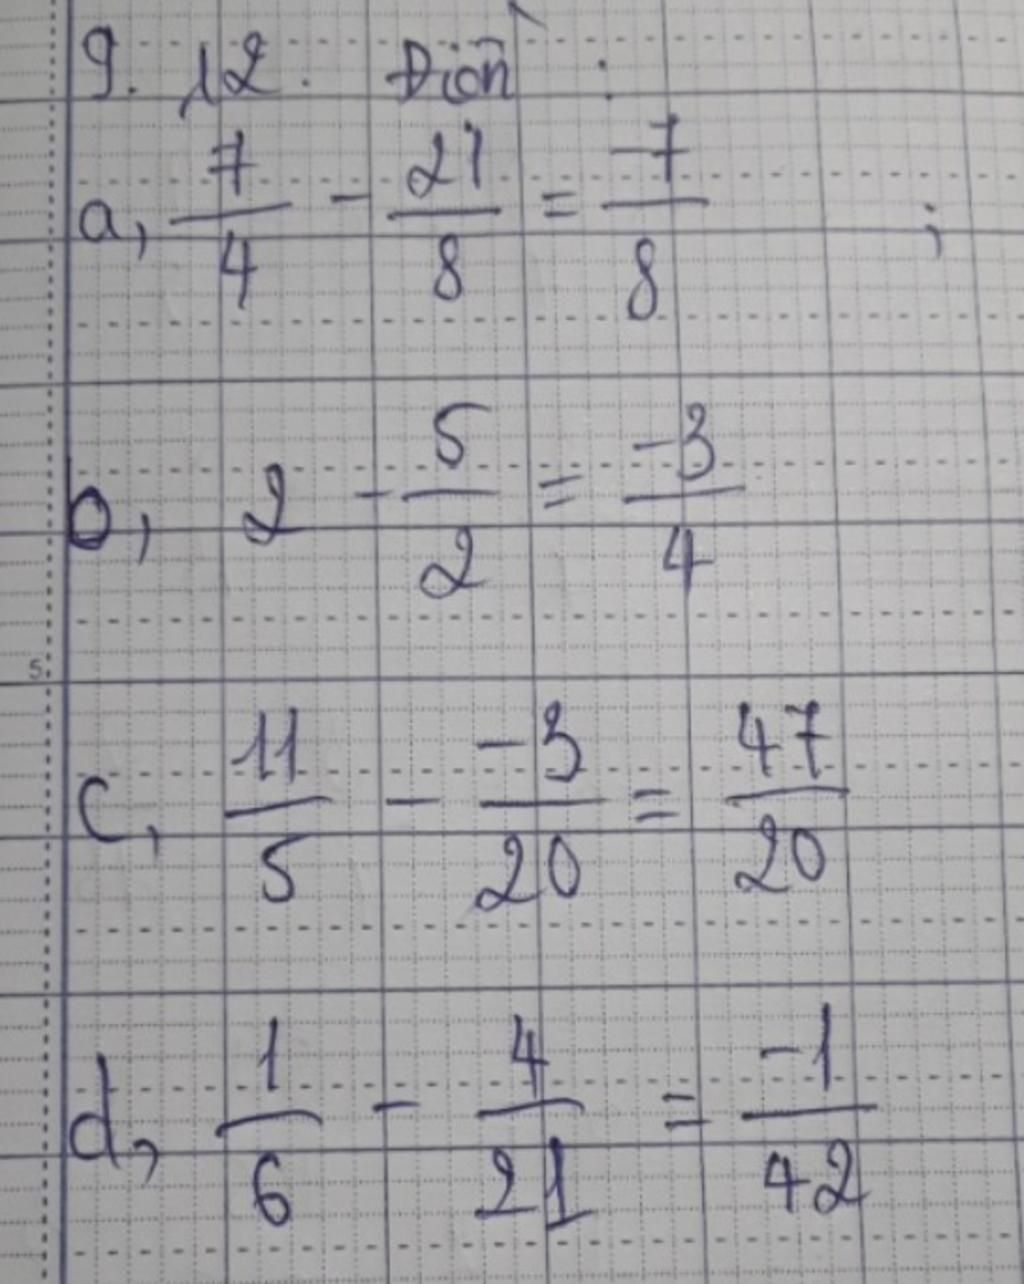 9. 12. Điền :
a, 7/4 - 21/8 = -7/8 ;
b, 2 - 5/2 = -3/4
5
c, 11/5 - -3/20 = 47/20
d, 1/6 - 4/21 = -1/42